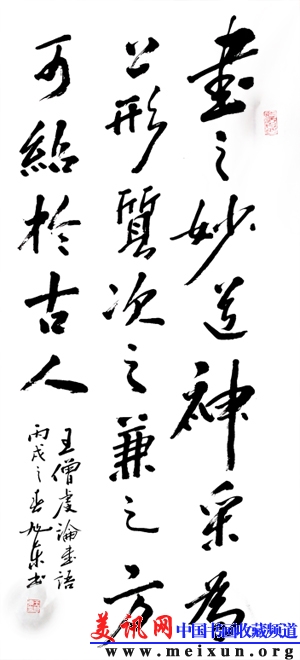 書之妙道神采為
上形質次之兼之方
可紹於古人
王僧虔論書語
丙戌之春旭东书
美讯网 中国书画收藏频道
www.meixun.org